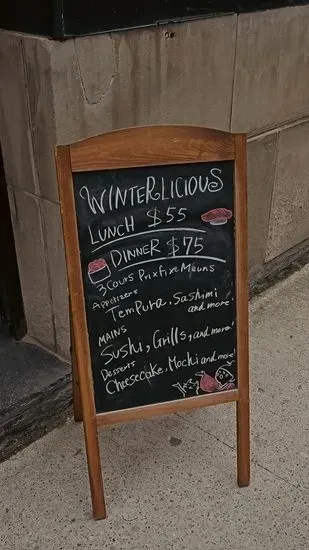 WINTERLICIOUS
LUNCH $55
DINNER $75
3 Cours Prix Fixe Meuns
Appetizers
Tempura, Sashimi
and more!
MAINS
Sushi, Grills, and more!
Desserts
Cheesecake, Mochi and more!